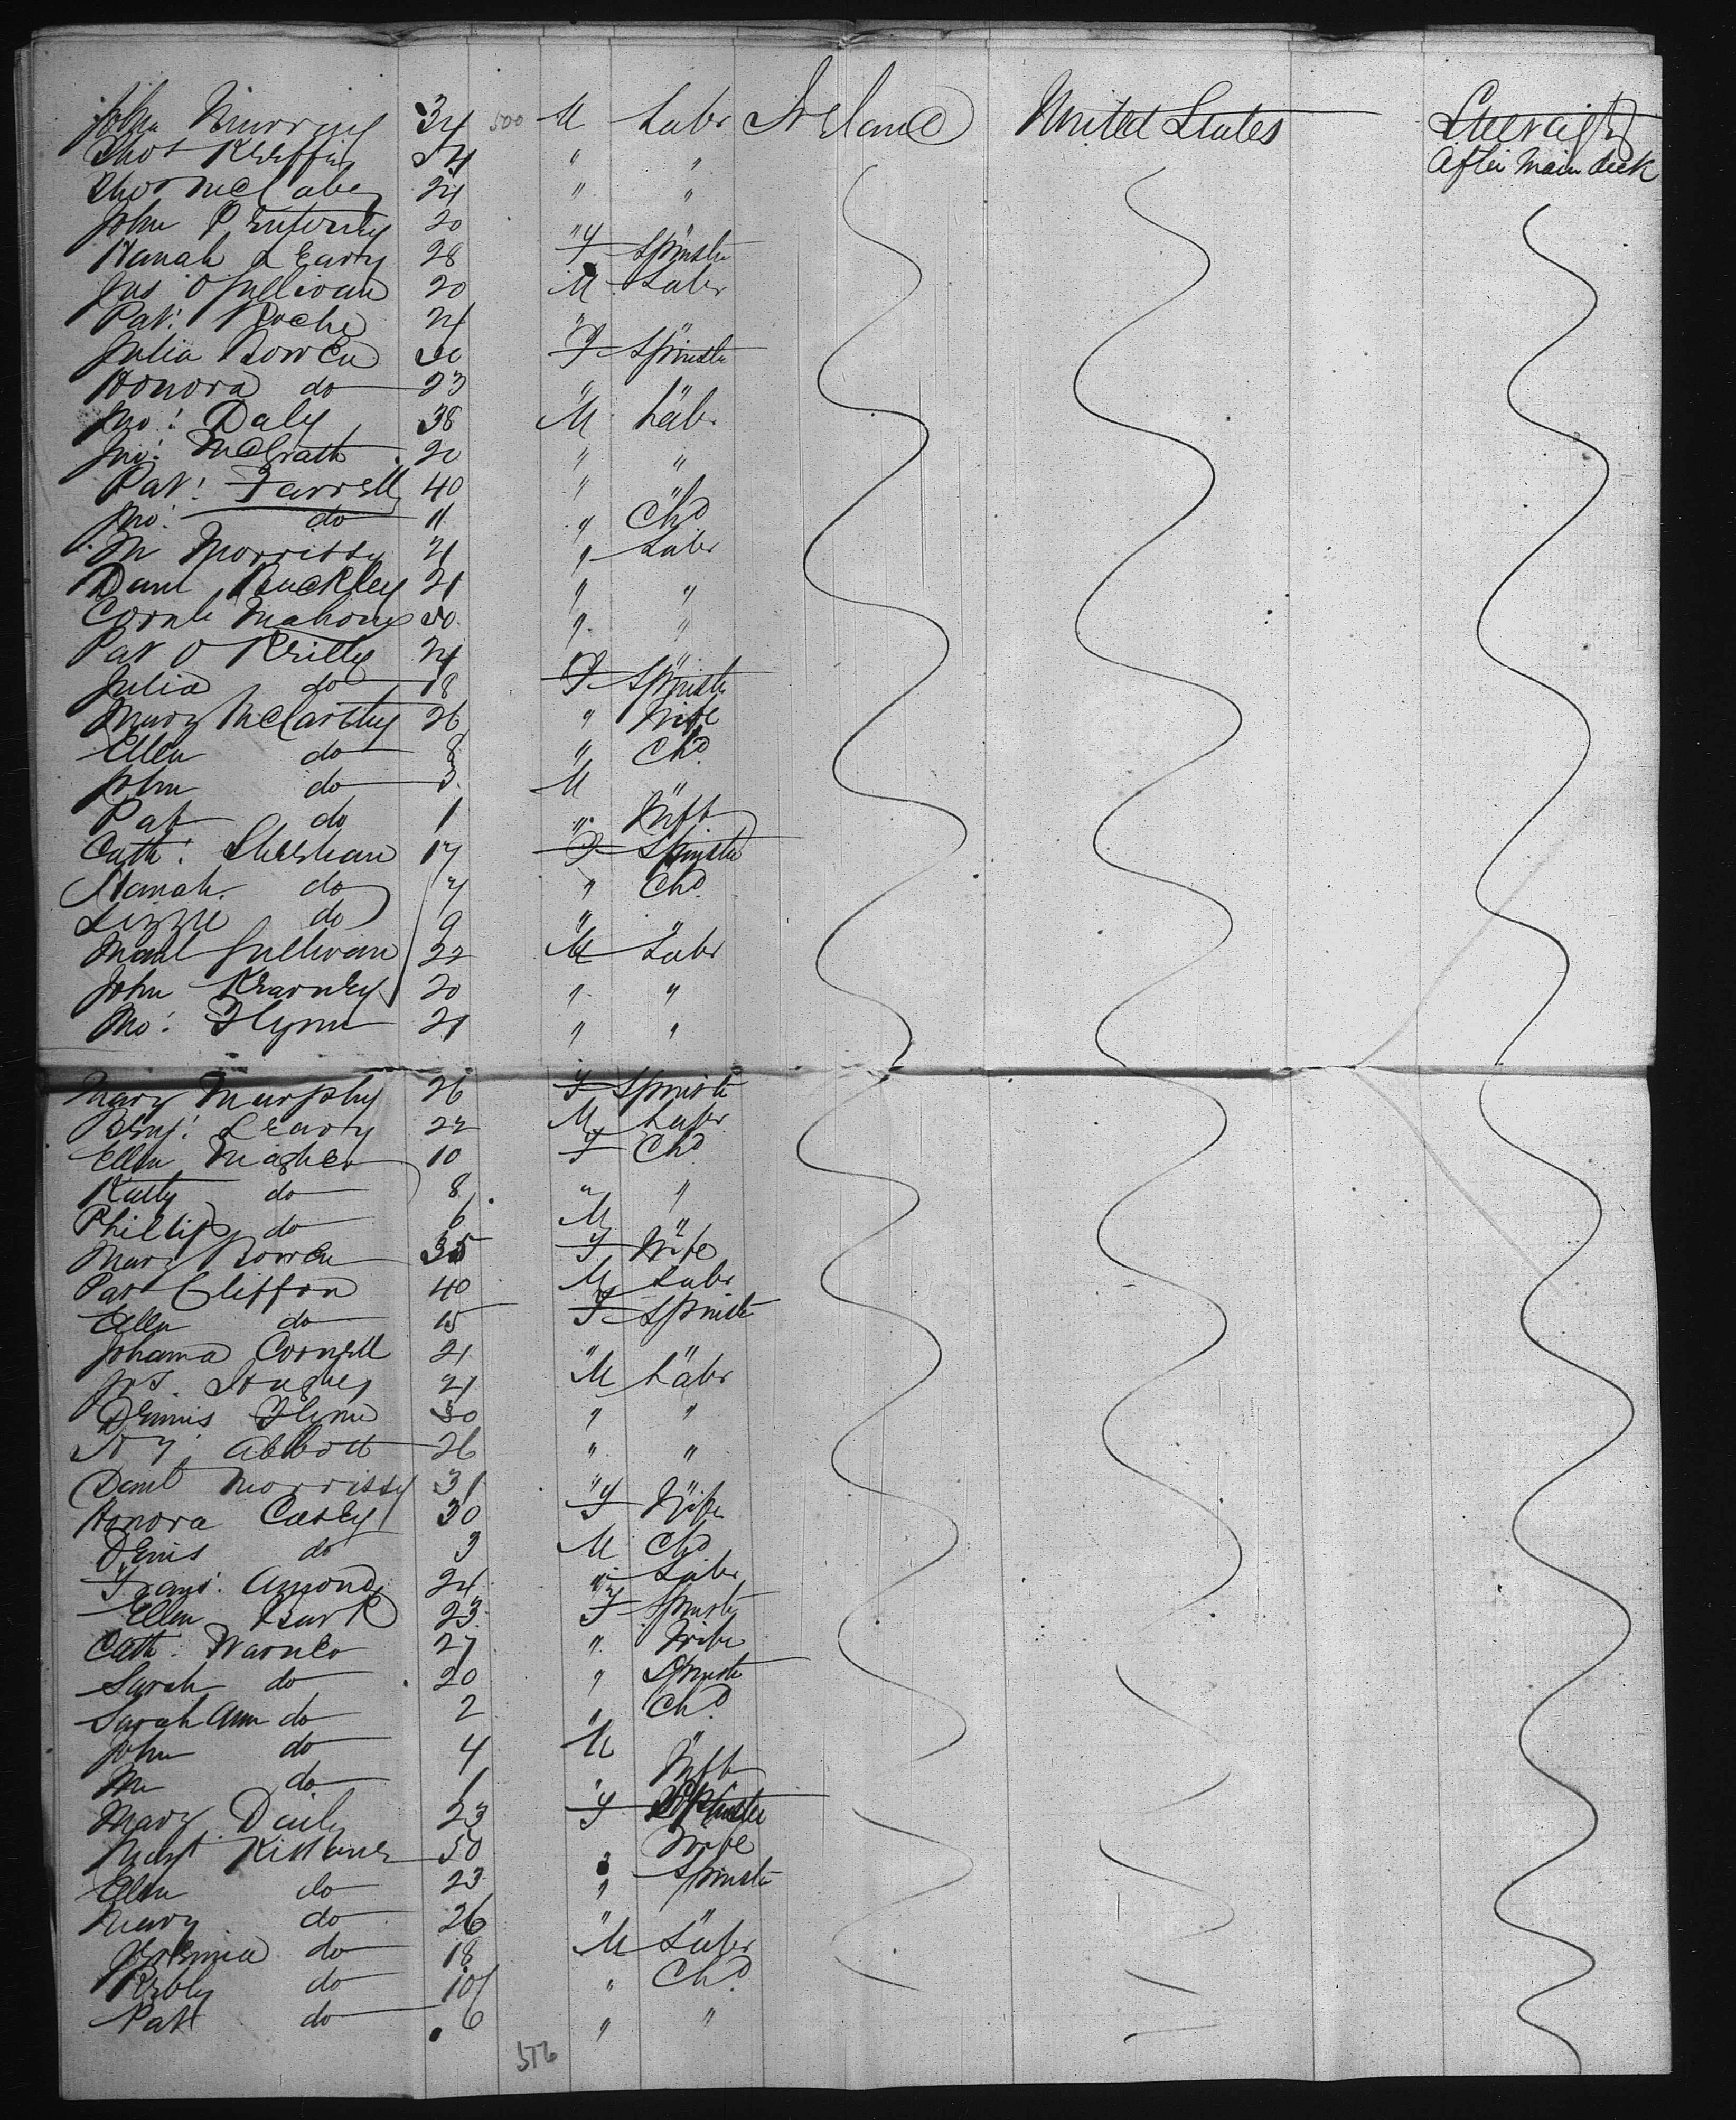 John Murray 34 500 M Labr Ireland United States Steerage
Thos Kieffer 24 " " After Main deck
Thos McCabe 24 " "
John P 20 " "
Hanah Leary 28 F Spinstr
Jas O Sullivan 20 M Labr
Pat: Roche 24 " "
Julia Bowen 20 F Spinstr
Honora do 23 " "
Jno: Daly 38 M Labr
Jno: McGrath 20 " "
Pat: Farrell 40 " "
Jno: do 11 " Chd
M Morrissy 21 " Labr
Danl Buckley 21 " "
Cornls Mahony 50 " "
Pat O Reilly 24 " "
Julia do 18 F Spinstr
Mary McCarthy 26 " Wife
Ellen do 8 " Chd
John do 3 M "
Pat do 1 " Inft
Cath: Sheehan 17 F Spinstr
Hanah do 7 " Chd
Lizzie do 9 " "
Michl Sullivan 22 M Labr
John Kearney 20 " "
Mo: Flynn 21 " "
Mary Murphy 26 F Spinstr
Benj: Leary 22 M Labr
Ellen Magher 10 F Chd
Katty do 8 " "
Phillip do 6 M "
Mary Bowen 35 F Wife
Pat Cliffon 40 M Labr
Ellen do 15 F Spinstr
Johanna Cornell 21 " "
Jos. 21 M Labr
Dennis Flynn 30 " "
Abbott 26 " "
Danl Morrissy 31 " "
Honora Casey 30 F Wife
Denis do 3 M Chd
Frans: Amond 24 " Labr
Ellen 23 F Spinstr
Cath: Warner 27 " Wife
Sarah do 20 " Spinstr
Sarah Ann do 2 " Chd
John do 4 M "
Wm do 1 " Inft
Mary Daily 23 F Spinster
Margt Killane 50 " Wife
Ellen do 23 " Spinstr
Mary do 26 " "
Jeremia do 18 M Labr
do 10 " Chd
Pat do 6 " "
556